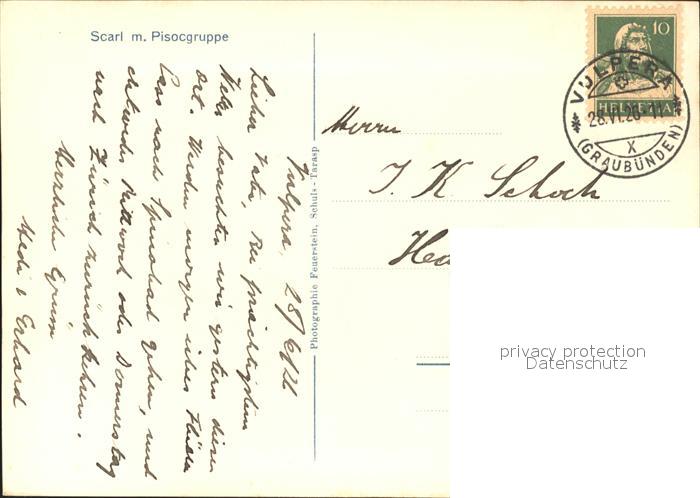 Scarl m. Pisocgruppe
Vulpera, 28/6/26
Lieber Vater, Bei prächtigstem
Wetter besuchten wir gestern diesen
Ort. Werden morgen übers Flüela
Pass nach Spinabad gehen, und
Mittwoch oder Donnerstag
nach Zürich zurück kehren.
Herzliche Grüsse
Hedi & Erhard
Photographie Feuerstein, Schuls-Tarasp
10
HELVETIA
VULPERA
28.VI.26
X
(GRAUBÜNDEN)
Herrn
J. K. Schoch
privacy protection
Datenschutz